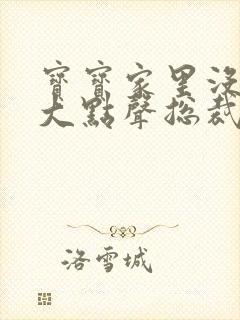 寶寶家里沒
大點聲總裁
洛雪城